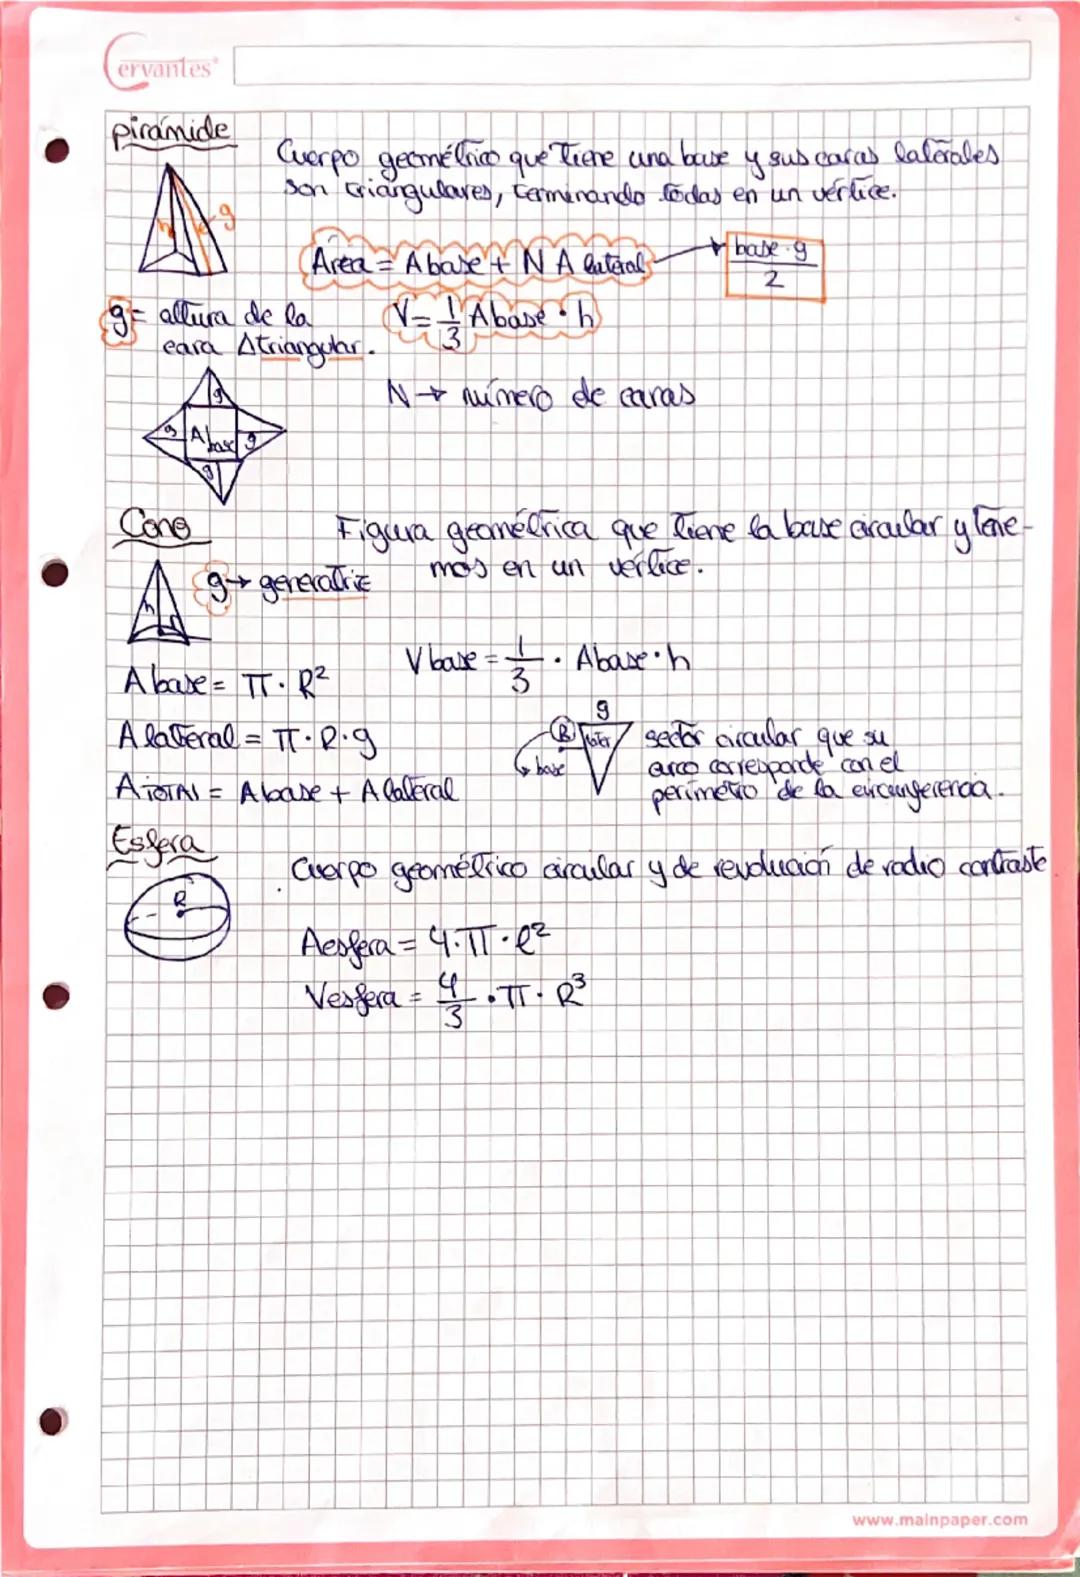 Cervantes
pirámide
Cuerpo geométrico que tiene una base y sus caras laterales
son triangulares, terminando todas en un vértice.
h g
Área = A base + N A lateral → base · g / 2
g = altura de la
cara Δtriangular.
V = 1/3 A base · h
N → número de caras
g
g A base g
g
Cono
Figura geométrica que tiene la base circular y tene-
mos en un vértice.
g → generatriz
h
A base = π · R²
V base = 1/3 · A base · h
A lateral = π · R · g
g
R later
base
sector circular que su
arco corresponde con el
perímetro de la circunferencia.
A TOTAL = A base + A lateral
Esfera
Cuerpo geométrico circular y de revolución de radio contraste
R
Aesfera = 4 · π · R²
Vesfera = 4/3 · π · R³
www.mainpaper.com